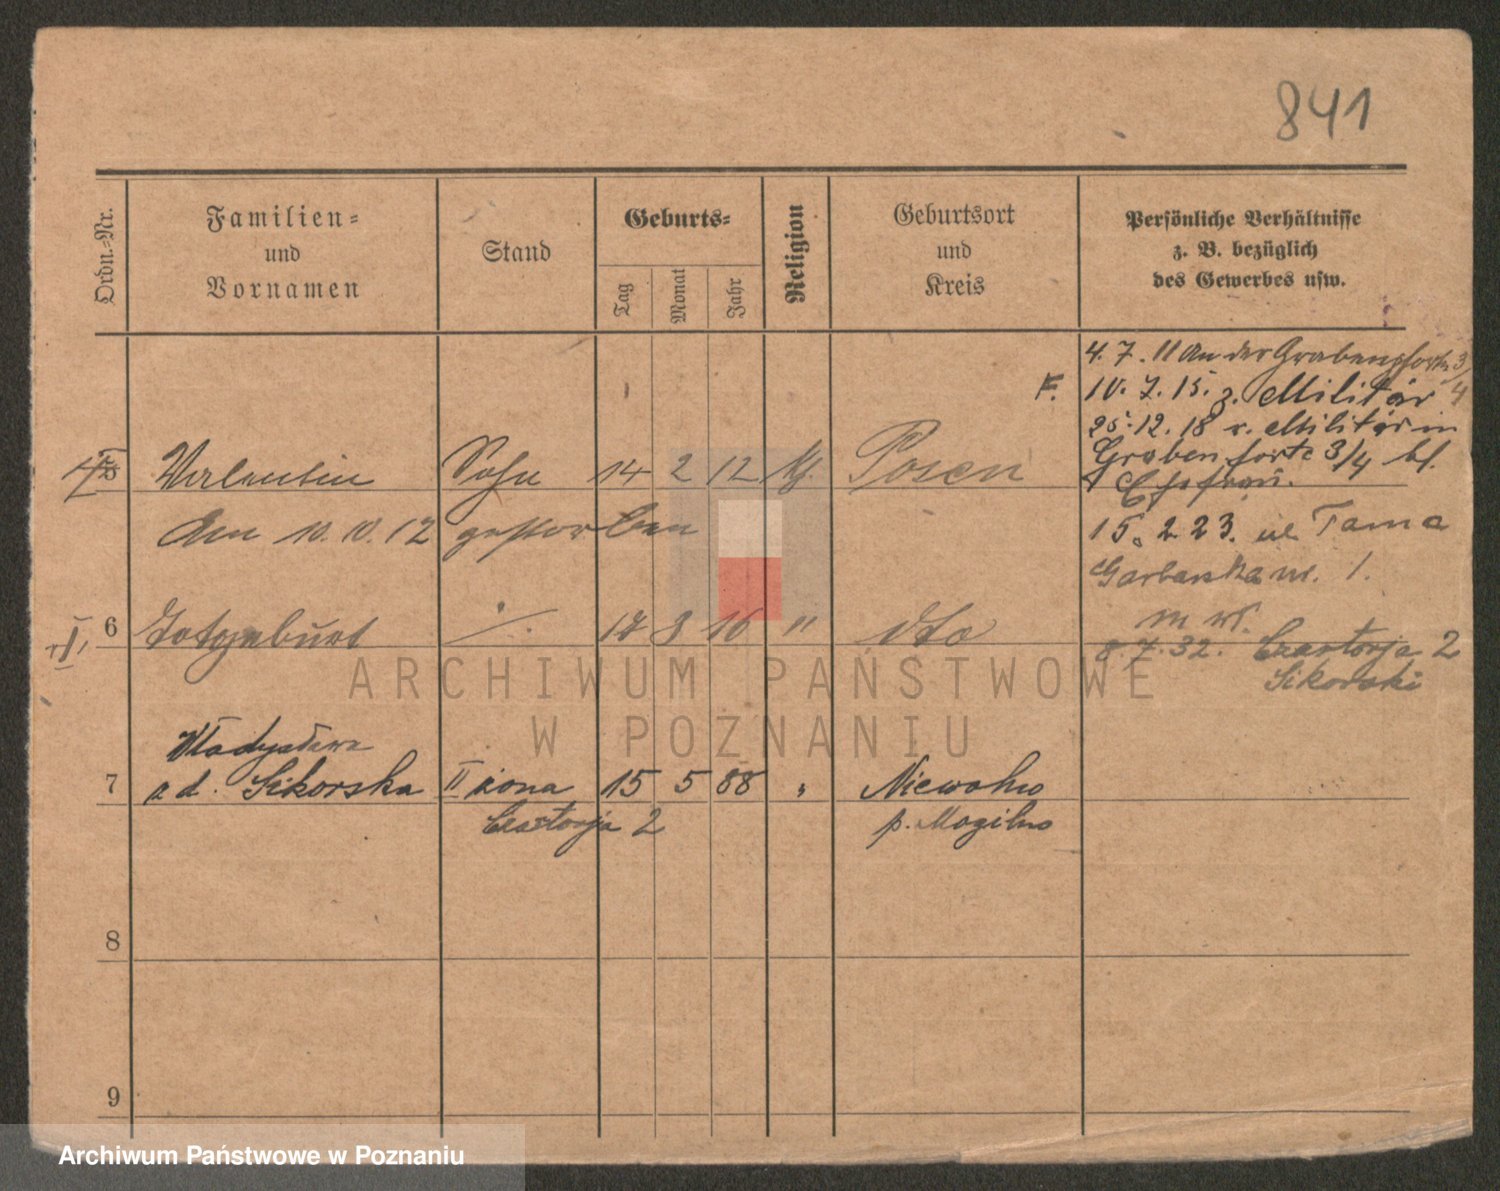 841
Ordn.-Nr.
Familien-
und
Vornamen
Stand
Geburts-
Tag
Monat
Jahr
Religion
Geburtsort
und
Kreis
Persönliche Verhältnisse
z. B. bezüglich
des Gewerbes usw.
4. 7. 11 An der Grabenpforte 3/4
F. 10. 7. 15. z. Militär
25.12.18 v. Militär in
Grabenpforte 3/4 bl.
Ehefrau.
15. 2. 23. ul. Tama
Garbarska nr. 1.
m. w.
8. 7. 32. Czartorja 2
Sikorski
5 Valentin Sohn 14 2 12 Posen
Am 10. 10. 12 gestorben
6 Totgeburt 8 16 " dto
Władysława
7 z d. Sikorska II żona 15 5 88 " Niewolno
Czartorja 2 p. Mogilno
8
9
ARCHIWUM PAŃSTWOWE
W POZNANIU
Archiwum Państwowe w Poznaniu